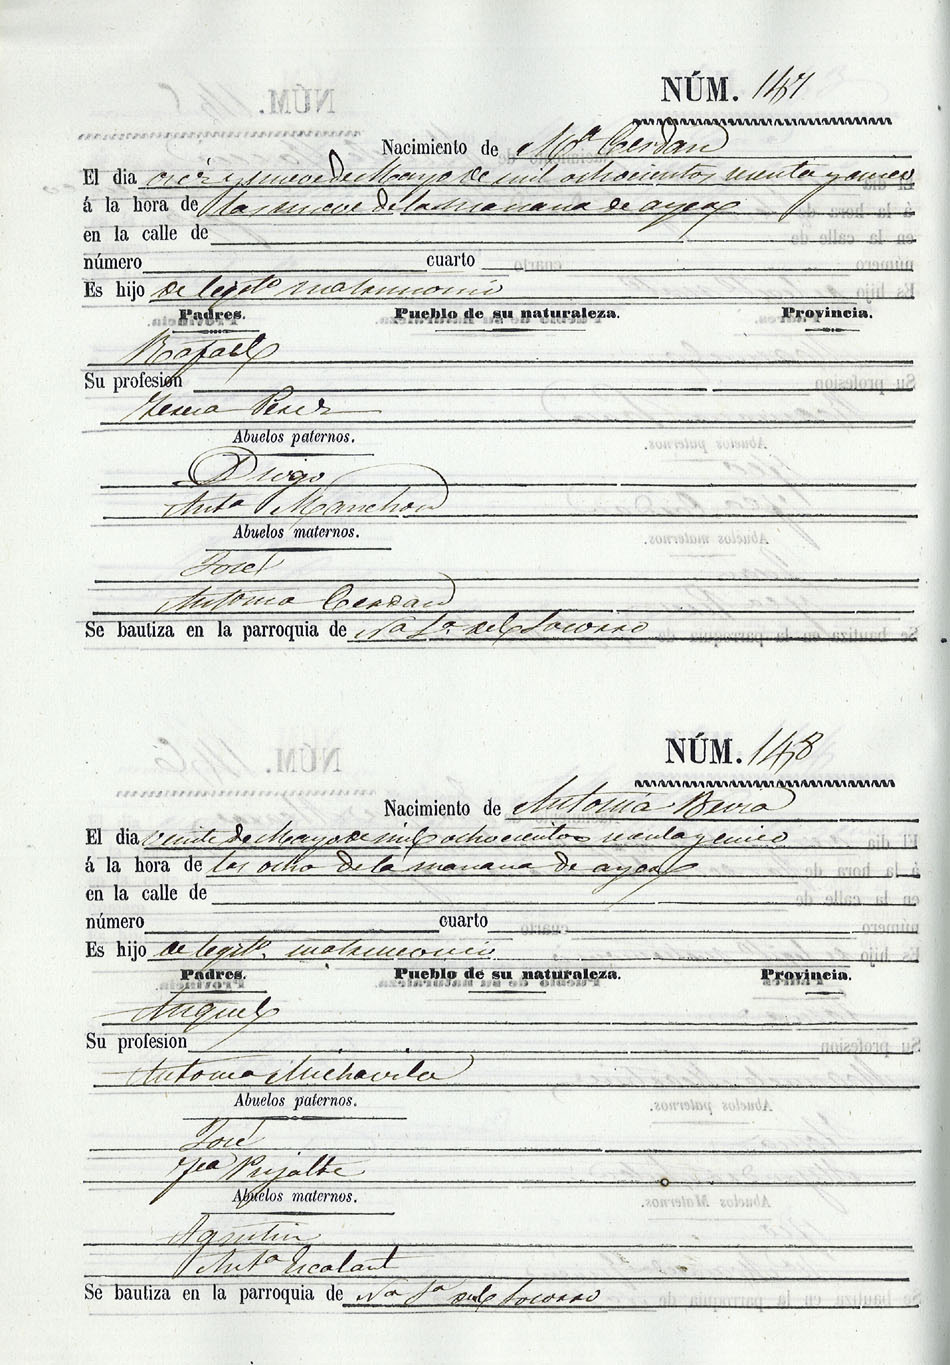 NÚM. 147
Nacimiento de Mª Cerdan
El dia diez y nueve de Mayo de mil ochocientos y cinco
á la hora de las nueve de la manana de ayer
en la calle de
número cuarto
Es hijo de legtº matrimonio
Padres. Pueblo de su naturaleza. Provincia.
Rafael
Su profesion
Teresa Perez
Abuelos paternos.
Diego
Antª Manchon
Abuelos maternos.
José
Antonia Cerdan
Se bautiza en la parroquia de Nª Sª del Socorro
NÚM. 148
Nacimiento de Antonia Bevia
El dia veinte de Mayo de mil ochocientos y cinco
á la hora de las ocho de la manana de ayer
en la calle de
número cuarto
Es hijo de legtº matrimonio
Padres. Pueblo de su naturaleza. Provincia.
Miguel
Su profesion
Antonia Michavila
Abuelos paternos.
José
Fca Pujalte
Abuelos maternos.
Agustin
Antª Escalant
Se bautiza en la parroquia de Nª Sª del Socorro